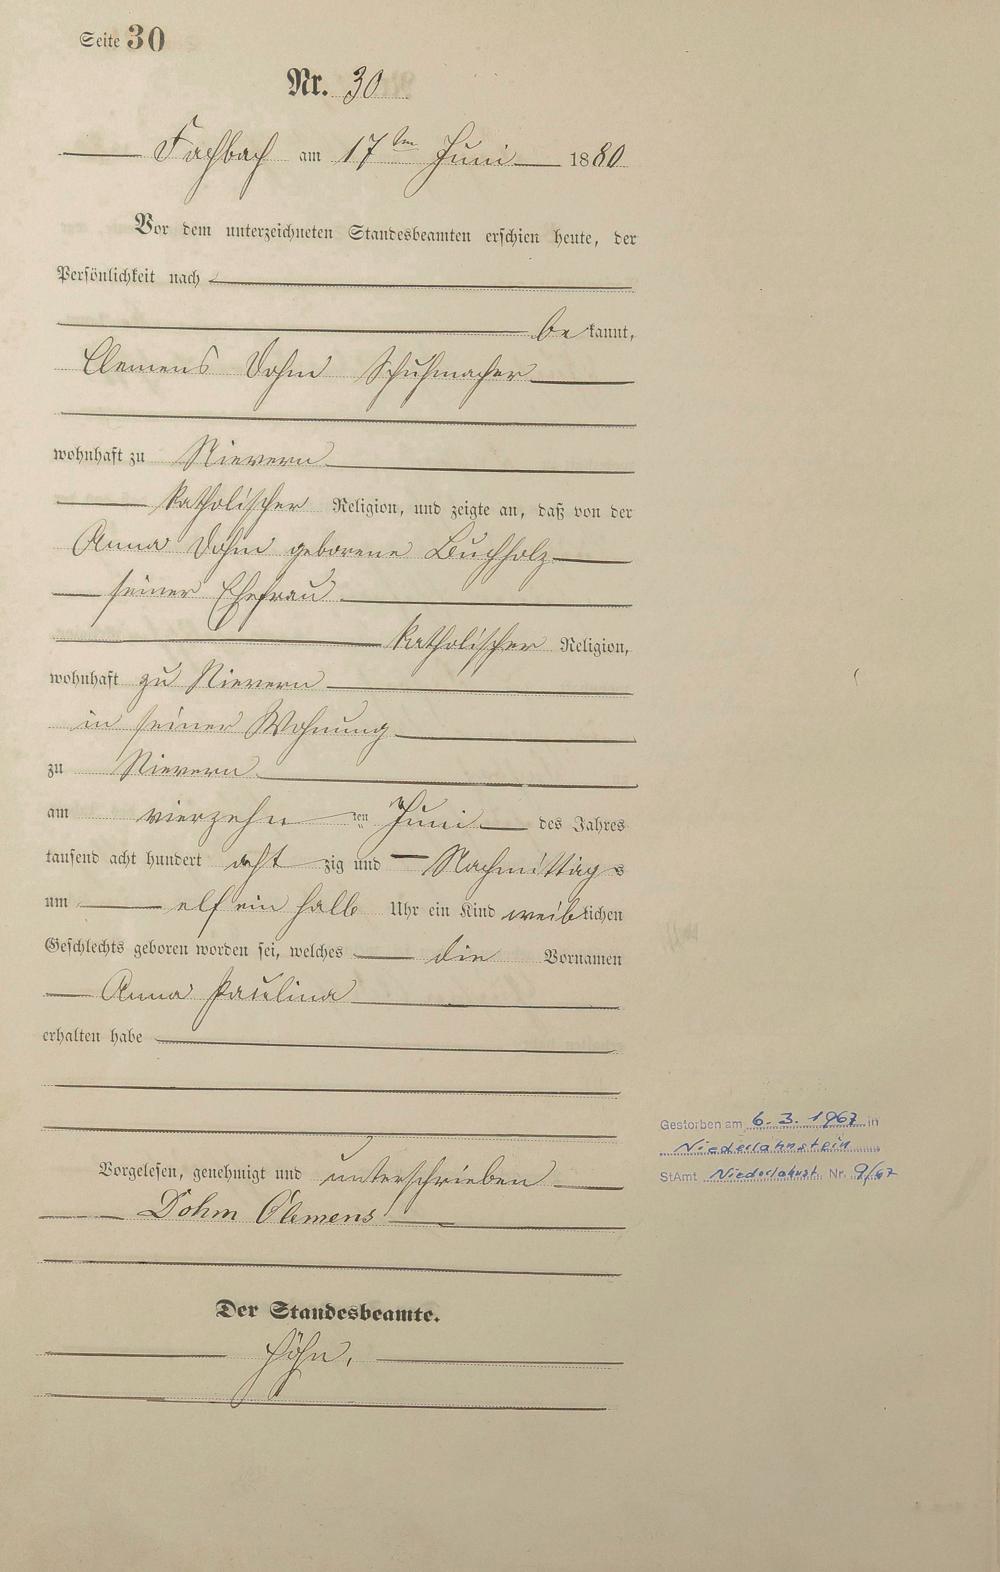 Seite 30
Nr. 30
Fachbach am 17ten Juni 1880
Vor dem unterzeichneten Standesbeamten erschien heute, der
Persönlichkeit nach
bekannt,
Clemens Dohm Schuhmacher
wohnhaft zu Nievern
katholischer Religion, und zeigte an, daß von der
Anna Dohm geborene Buchholz
seiner Ehefrau
katholischer Religion,
wohnhaft zu Nievern
in seiner Wohnung
zu Nievern
am vierzehn ten Juni des Jahres
tausend acht hundert acht zig und — Nachmittags
um elf ein halb Uhr ein Kind weiblichen
Geschlechts geboren worden sei, welches die Vornamen
Anna Paulina
erhalten habe
Vorgelesen, genehmigt und unterschrieben
Dohm Clemens
Der Standesbeamte.
Höhn.
Gestorben am 6.3.1967 in
Niederlahnstein
StAmt Niederlahnst. Nr. 9/67